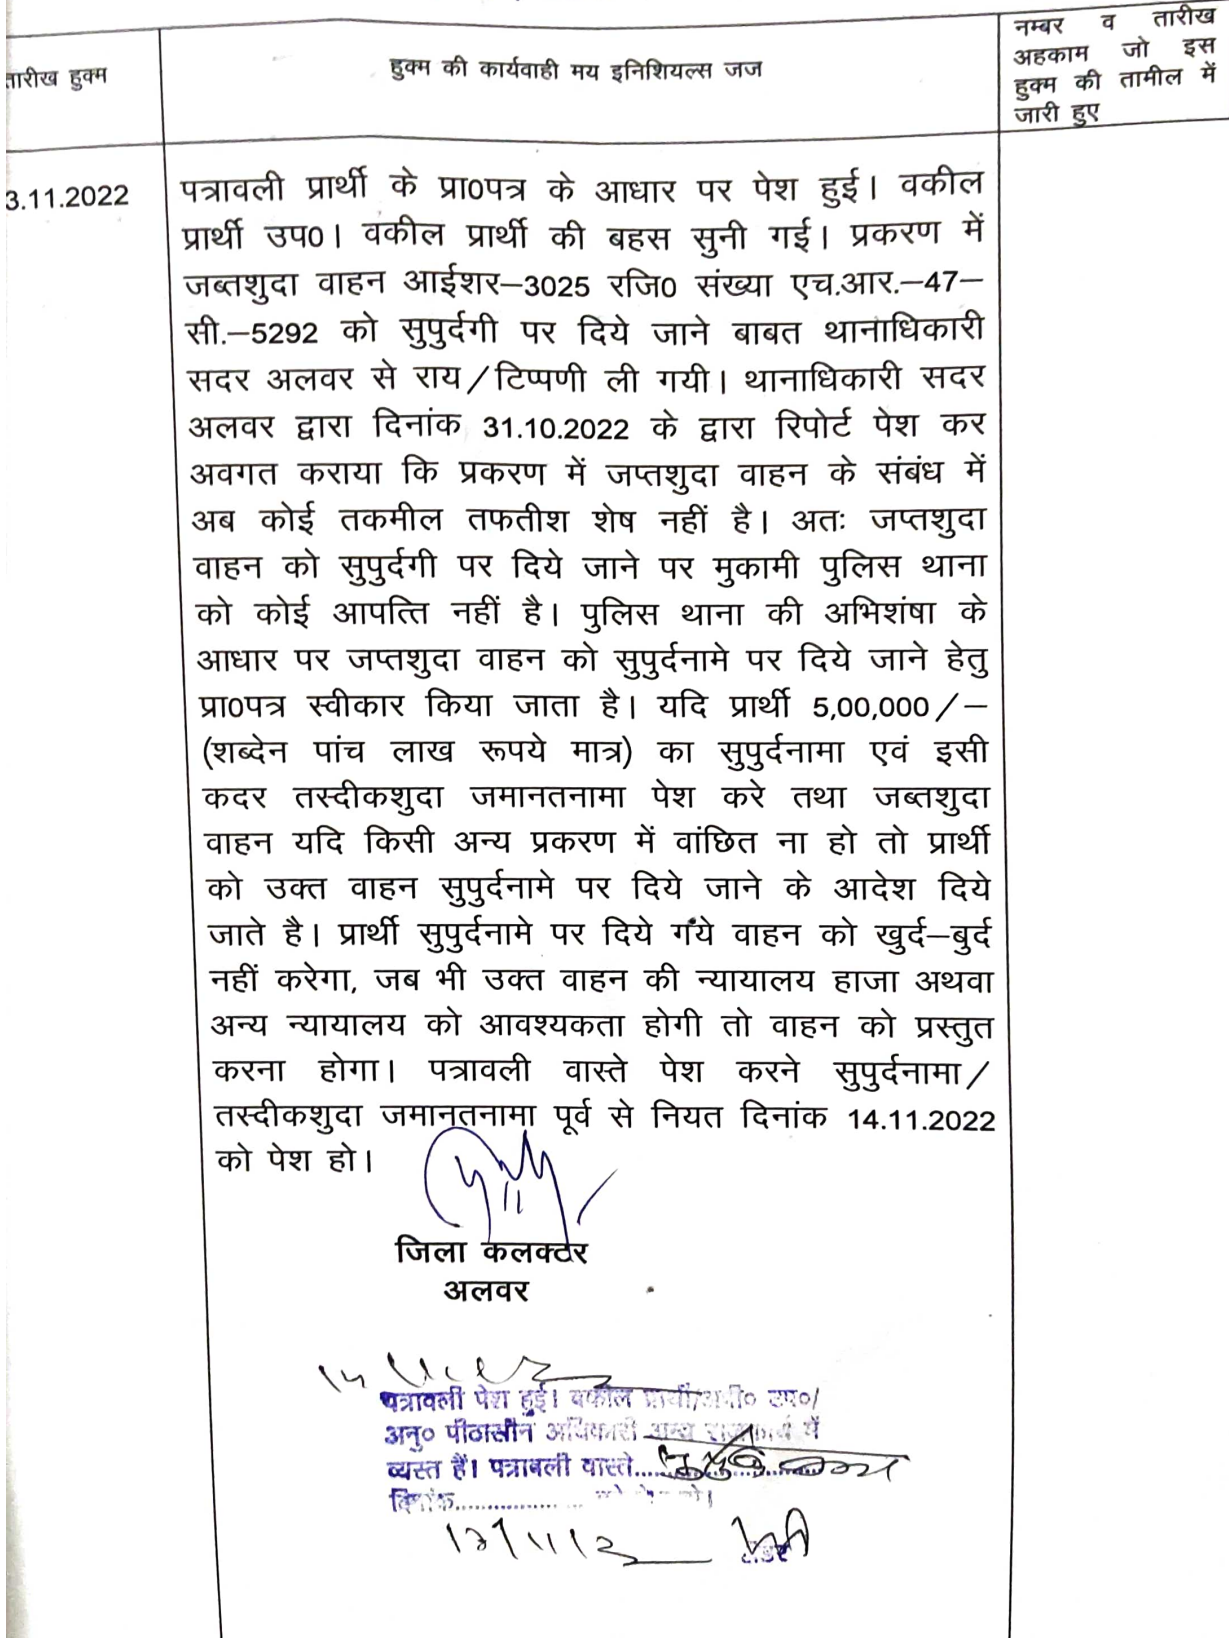 तारीख हुक्म
हुक्म की कार्यवाही मय इनिशियल्स जज
नम्बर व तारीख
अहकाम जो इस
हुक्म की तामील में
जारी हुए
3.11.2022
पत्रावली प्रार्थी के प्रा0पत्र के आधार पर पेश हुई। वकील
प्रार्थी उप0। वकील प्रार्थी की बहस सुनी गई। प्रकरण में
जब्तशुदा वाहन आईशर–3025 रजि0 संख्या एच.आर.–47–
सी.–5292 को सुपुर्दगी पर दिये जाने बाबत थानाधिकारी
सदर अलवर से राय/टिप्पणी ली गयी। थानाधिकारी सदर
अलवर द्वारा दिनांक 31.10.2022 के द्वारा रिपोर्ट पेश कर
अवगत कराया कि प्रकरण में जप्तशुदा वाहन के संबंध में
अब कोई तकमील तफतीश शेष नहीं है। अतः जप्तशुदा
वाहन को सुपुर्दगी पर दिये जाने पर मुकामी पुलिस थाना
को कोई आपत्ति नहीं है। पुलिस थाना की अभिशंषा के
आधार पर जप्तशुदा वाहन को सुपुर्दनामे पर दिये जाने हेतु
प्रा0पत्र स्वीकार किया जाता है। यदि प्रार्थी 5,00,000/–
(शब्देन पांच लाख रूपये मात्र) का सुपुर्दनामा एवं इसी
कदर तस्दीकशुदा जमानतनामा पेश करे तथा जब्तशुदा
वाहन यदि किसी अन्य प्रकरण में वांछित ना हो तो प्रार्थी
को उक्त वाहन सुपुर्दनामे पर दिये जाने के आदेश दिये
जाते है। प्रार्थी सुपुर्दनामे पर दिये गये वाहन को खुर्द–बुर्द
नहीं करेगा, जब भी उक्त वाहन की न्यायालय हाजा अथवा
अन्य न्यायालय को आवश्यकता होगी तो वाहन को प्रस्तुत
करना होगा। पत्रावली वास्ते पेश करने सुपुर्दनामा/
तस्दीकशुदा जमानतनामा पूर्व से नियत दिनांक 14.11.2022
को पेश हो।
जिला कलक्टर
अलवर
पत्रावली पेश हुई। वकील प्रार्थी/अप्री० उप०/
अनु० पीठासीन अधिकारी अन्य राजकार्य में
व्यस्त हैं। पत्रावली वास्ते
दिनांक